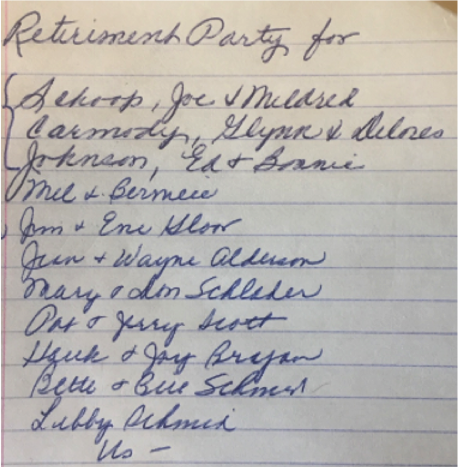 Retirement Party for
Schoop, Joe & Mildred
Carmody, Glynn & Delores
Johnson, Ed & Bonnie
Mel & Berniece
Jim & Ene
Jean & Wayne Alderson
Mary & Don Schlader
Pat & Jerry Scott
Hank & Joy
Bette & Bill
Libby Schmid
Us -